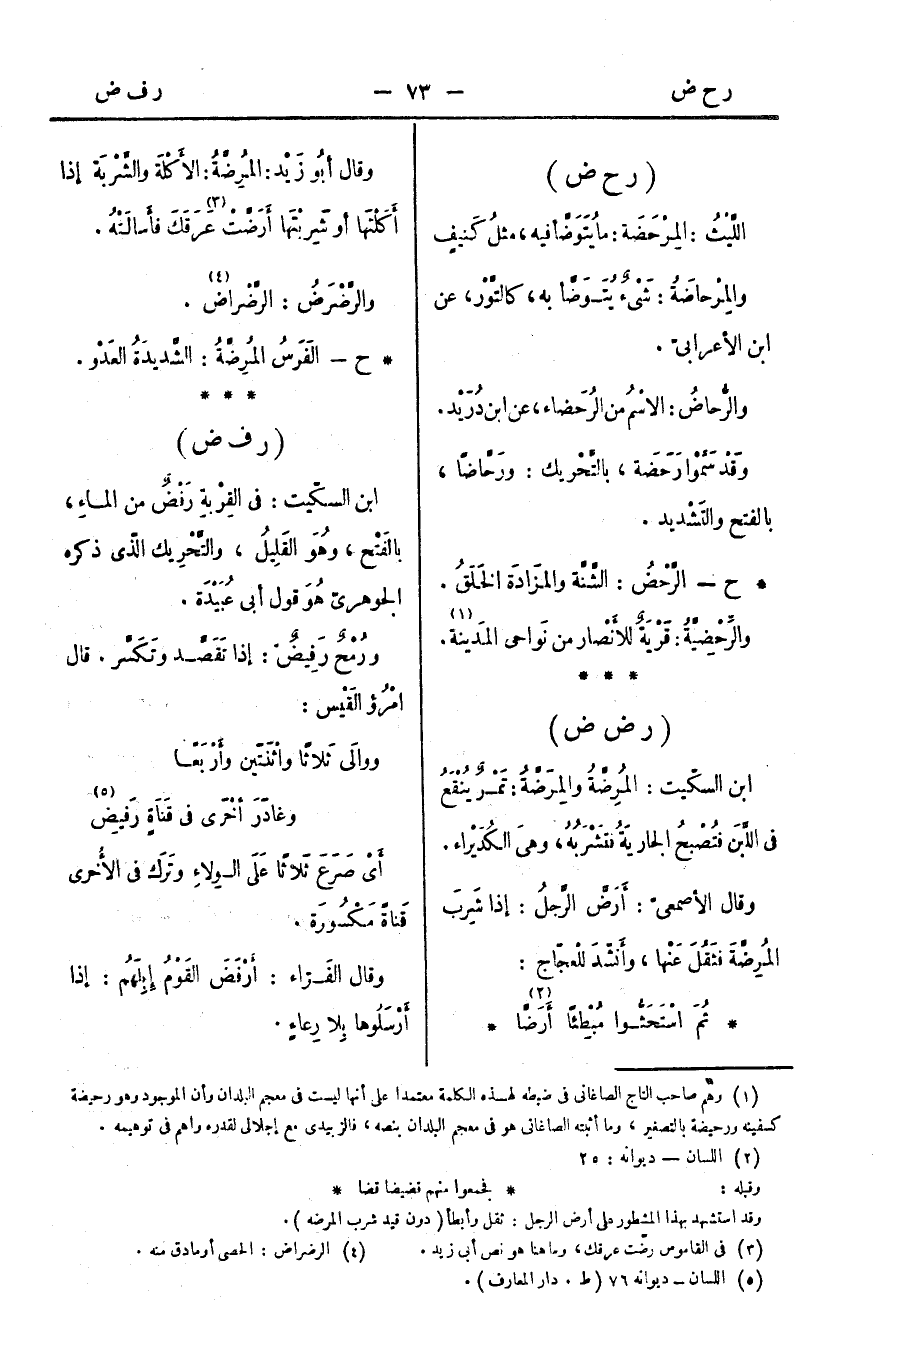 رح ض
— ٧٣ —
رف ض
(رح ض)
اللَّيْثُ : المِرْحَضَة : ما يُتَوَضَّأ فيه ، مثلُ كَنِيف
والمِرْحاضَةُ : شَىْءٌ يُتَوَضَّأ به ، كالتَّوْر ، عن
ابن الأعرابىّ .
والرُّحاضُ : الاسْمُ من الرُّحَضاء ، عن ابن دُرَيْد .
وقَدْ سَمَّوْا رَحَضَة ، بالتَّحْرِيك : ورَحَّاضًا ،
بالفتح والتَّشْديد .
* ح — الرَّحْضُ : الشَّنَّة والمَزَادَة الخَلَقُ .
والرُّحَضِيَّةُ (١) : قَرْيَةٌ للأَنْصار من نَواحى المَدينة .
* * *
(رض ض)
ابن السكّيت : المُرِضَّةُ والمِرَضَّةُ : تَمْرٌ يُنْقَعُ
فى اللَّبَن فتُصْبِحُ الجاريَةُ فتَشْرَبُهُ ، وهىَ الكُدَيْراء .
وقال الأصمعىّ : أَرَضَّ الرَّجلُ : إذا شَرِبَ
المُرِضَّةَ فثَقُلَ عَنْها ، وأَنْشَدَ للْعجّاج :
* ثُمّ اسْتَحَثُّوا مُبْطِئًا أَرَضَّا (٢) *
وقال أبُو زَيْد : المُرِضَّةُ : الأَكْلَة والشَّرْبَة إذا
أَكَلْتَها أو شَرِبْتَها أَرَضَّتْ عَرَقَكَ (٣) فأَسالَتْهُ .
والرَّضْرَضُ : الرَّضْراضُ (٤) .
* ح — الفَرَسُ المُرِضَّةُ : الشَّديدَةُ العَدْوِ .
* * *
(رف ض)
ابن السكّيت : فى القِرْبةِ رَفْضٌ من الماءِ ،
بالفَتْح ، وهُوَ القَلِيلُ ، والتَّحْرِيك الذّى ذكره
الجوهرىّ هُوَ قول أبى عُبَيْدَة .
ورُمْحٌ رَفِيضٌ : إذا تَقَصَّد وتَكَسَّر . قال
امْرُؤ القَيْس :
ووالَى ثَلاثًا واثْنَتَين وأَرْبَعًا
وغادَرَ أُخْرَى فى قَناةِ رَفِيضِ (٥)
أَىْ صَرَعَ ثَلاثًا عَلَى الوِلاءِ وتَرَك فى الأُخْرى
قَناةً مَكْسُورَة .
وقال الفَرّاء : أَرْفَضَ القَوْمُ إِبِلَهُم : إذا
أَرْسَلُوها بِلا رِعاءٍ .
(١) وهَّم صاحب التاج الصاغانى فى ضبطه لهذه الكلمة معتمدا على أنها ليست فى معجم البلدان وأن الموجود وهو رحيضة
كسفينه ورحيضة بالتصغير ، وما أثبته الصاغانى هو فى معجم البلدان بنصه ، فالزبيدى مع إجلالى لقدره واهم فى توهيمه .
(٢) اللسان — ديوانه : ٢٥
وقبله : * فجمعوا منهم قضيضا قضا *
وقد استشهد بهذا المشطور على أرض الرجل : ثقل وأبطأ (دون قيد شرب المرضه) .
(٣) فى القاموس رضّت عرقك ، وما هنا هو نص أبى زيد . (٤) الرضراض : الحصى أو مادق منه .
(٥) اللسان — ديوانه ٧٦ (ط . دار المعارف) .